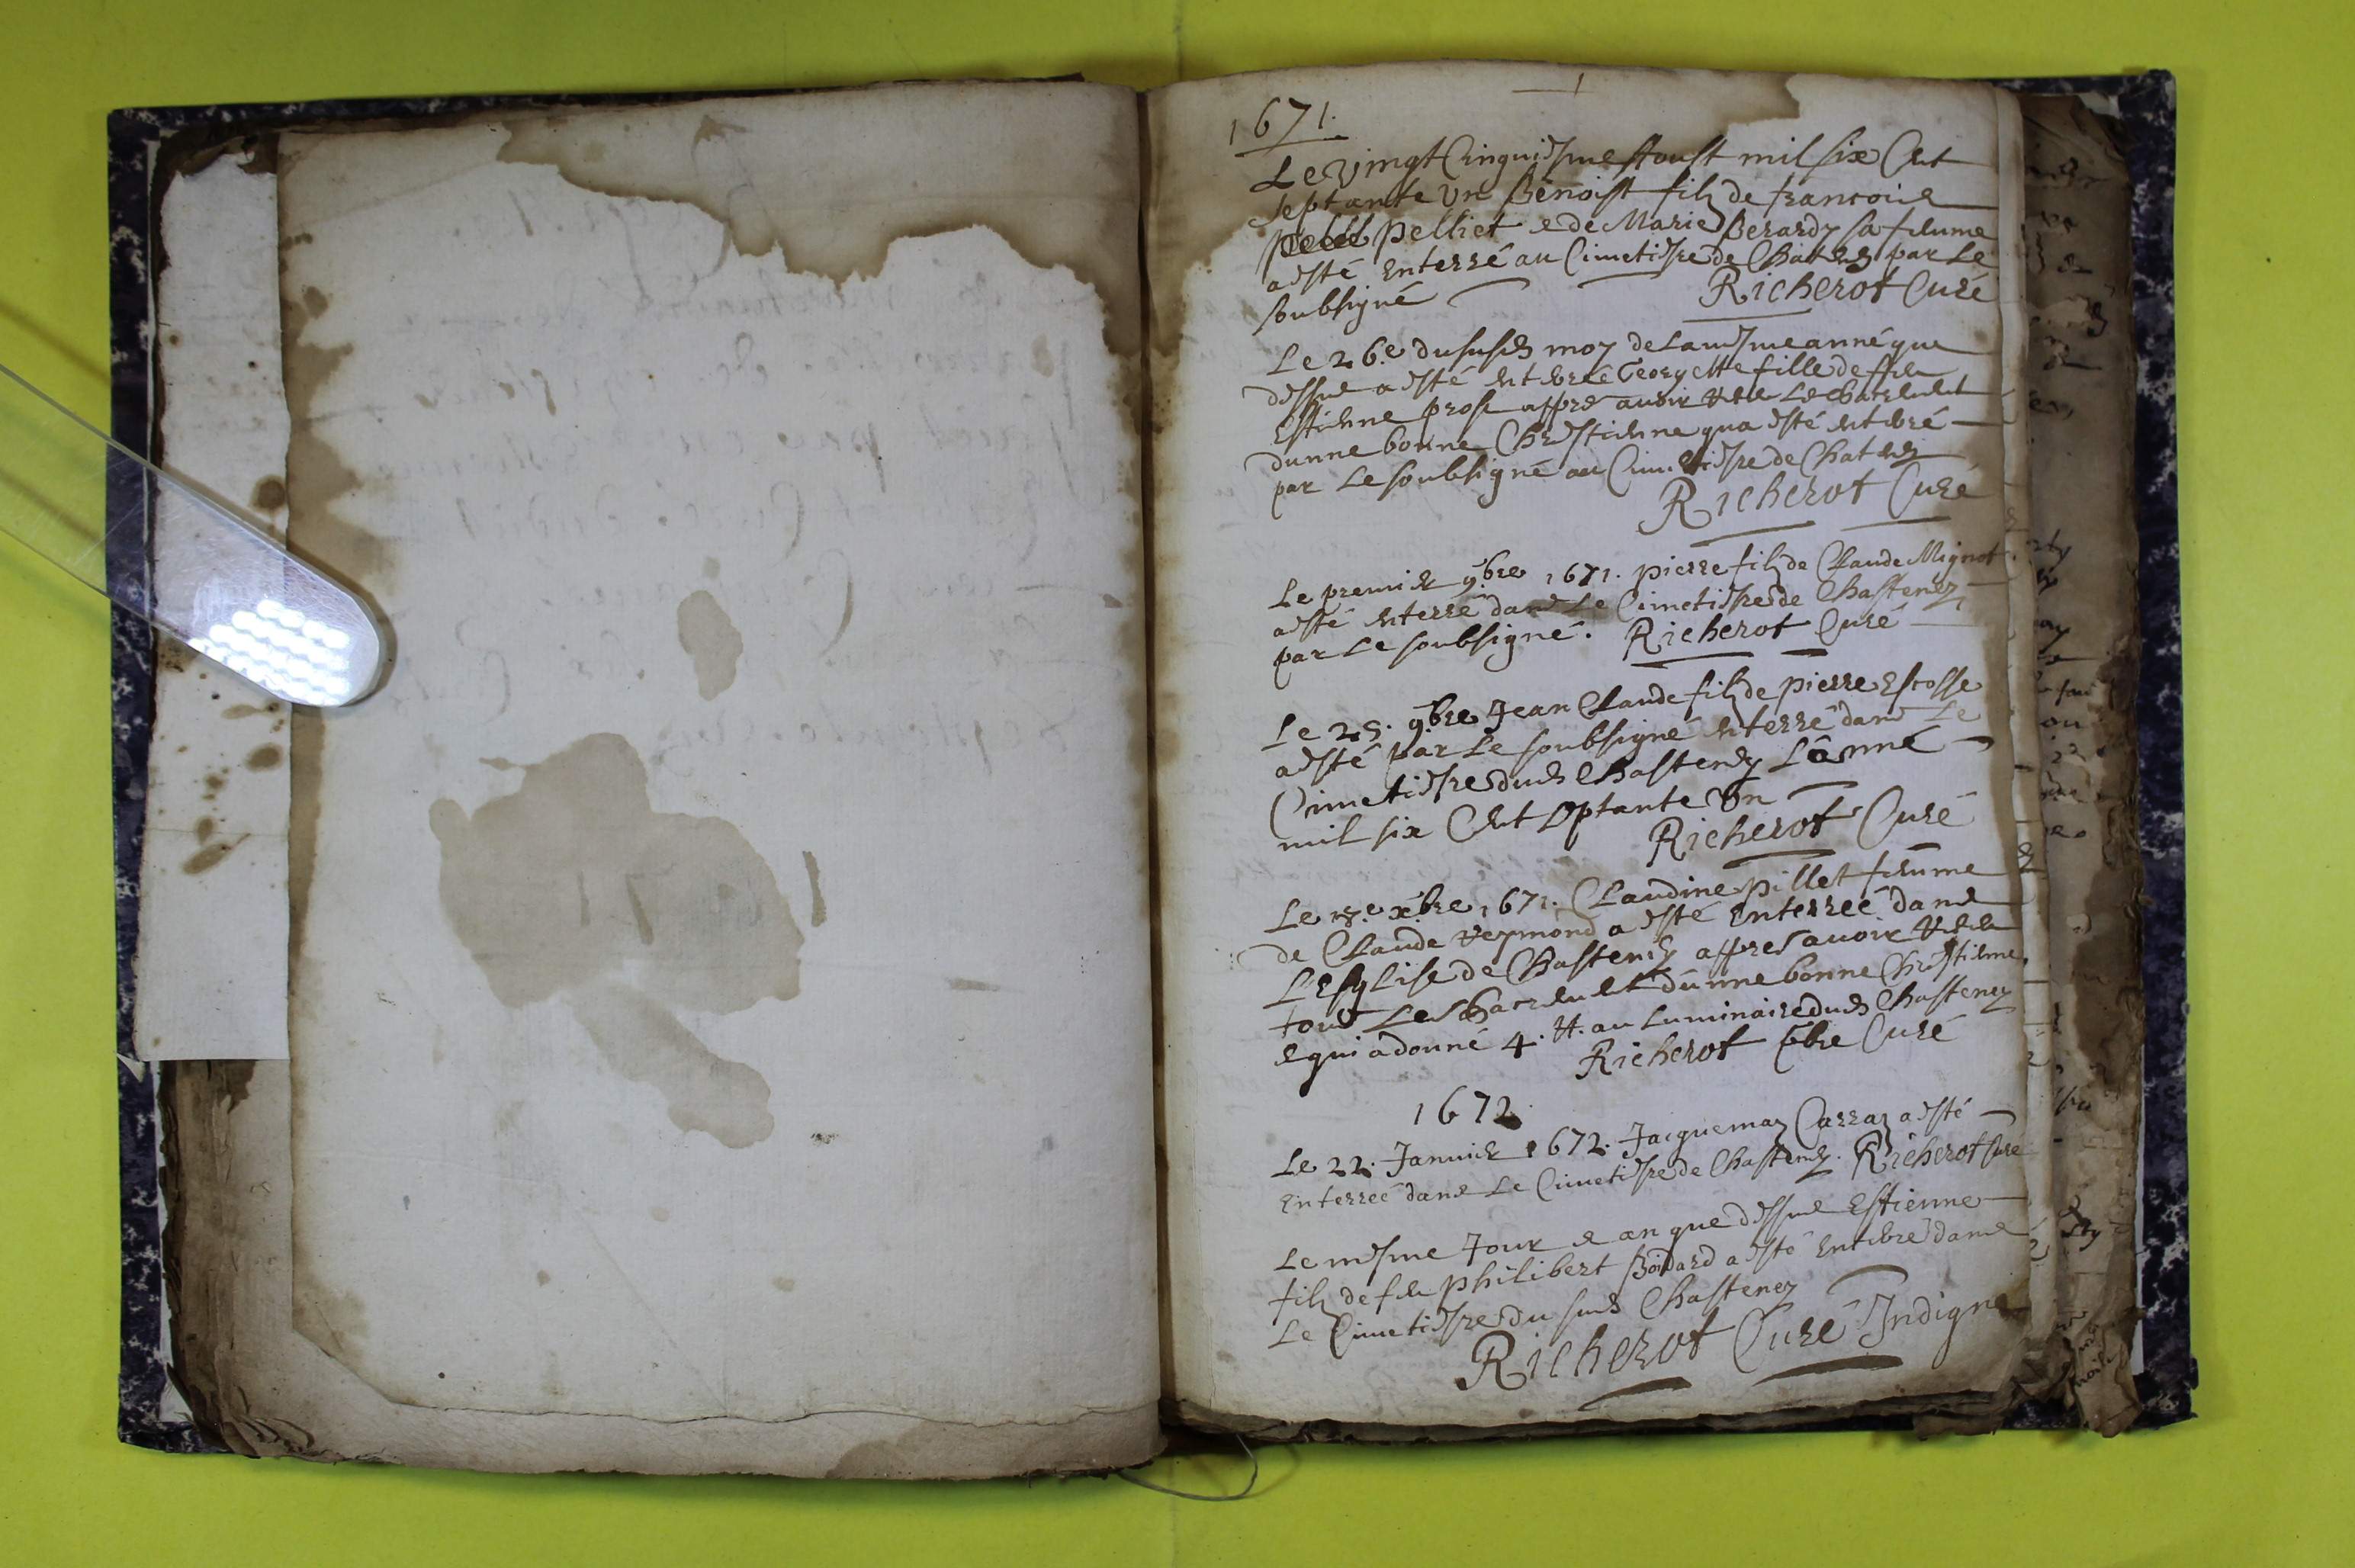 1671.
Le vingt cinquiesme aoust mil six cent
septante un Benoist filz de francois
pelliet e de Marie Berardy sa femme
a esté enterré au Cimetiere de Chateney par Le
soubsigné Richerot Curé
Le 26.e du susd moy de la mesme anné que
dessus a esté enterré Georgette fille de feu
Estienne prost appres avoir
dunne bonne Chrestienne qua esté enterré
par Le soubsigné au Cimetiere de Chateney
Richerot Curé
Le premier 9.bre 1671. pierre filz de Claude Mignot
a esté enterré dans Le Cimetiere de Chasteney
par Le soubsigné. Richerot Curé
Le 25. 9.bre Jean Claude filz de pierre Escosse
a esté par Le soubsigné enterré dans Le
Cimetiere dud Chasteney L'anné
mil six Cent septante un
Richerot Curé
Le xbre 1671. Claudine pillet femme
de Claude Reymond a esté enterreé dans
L'Esglise de Chasteney appres avoir
tous Les dunne bonne Chrestienne
e qui a donné 4. tt. au Luminaire dud Chasteney
Richerot pbre Curé
1672
Le 22. Janvier 1672. Jacquemaz Carraz a esté
enterreé dans Le Cimetiere de Chasteney. Richerot Curé
Le mesme Jour e an que dessus Estienne
filz de feu philibert a esté enterré dans
Le Cimetiere du susd Chasteney
Richerot Curé Indigne